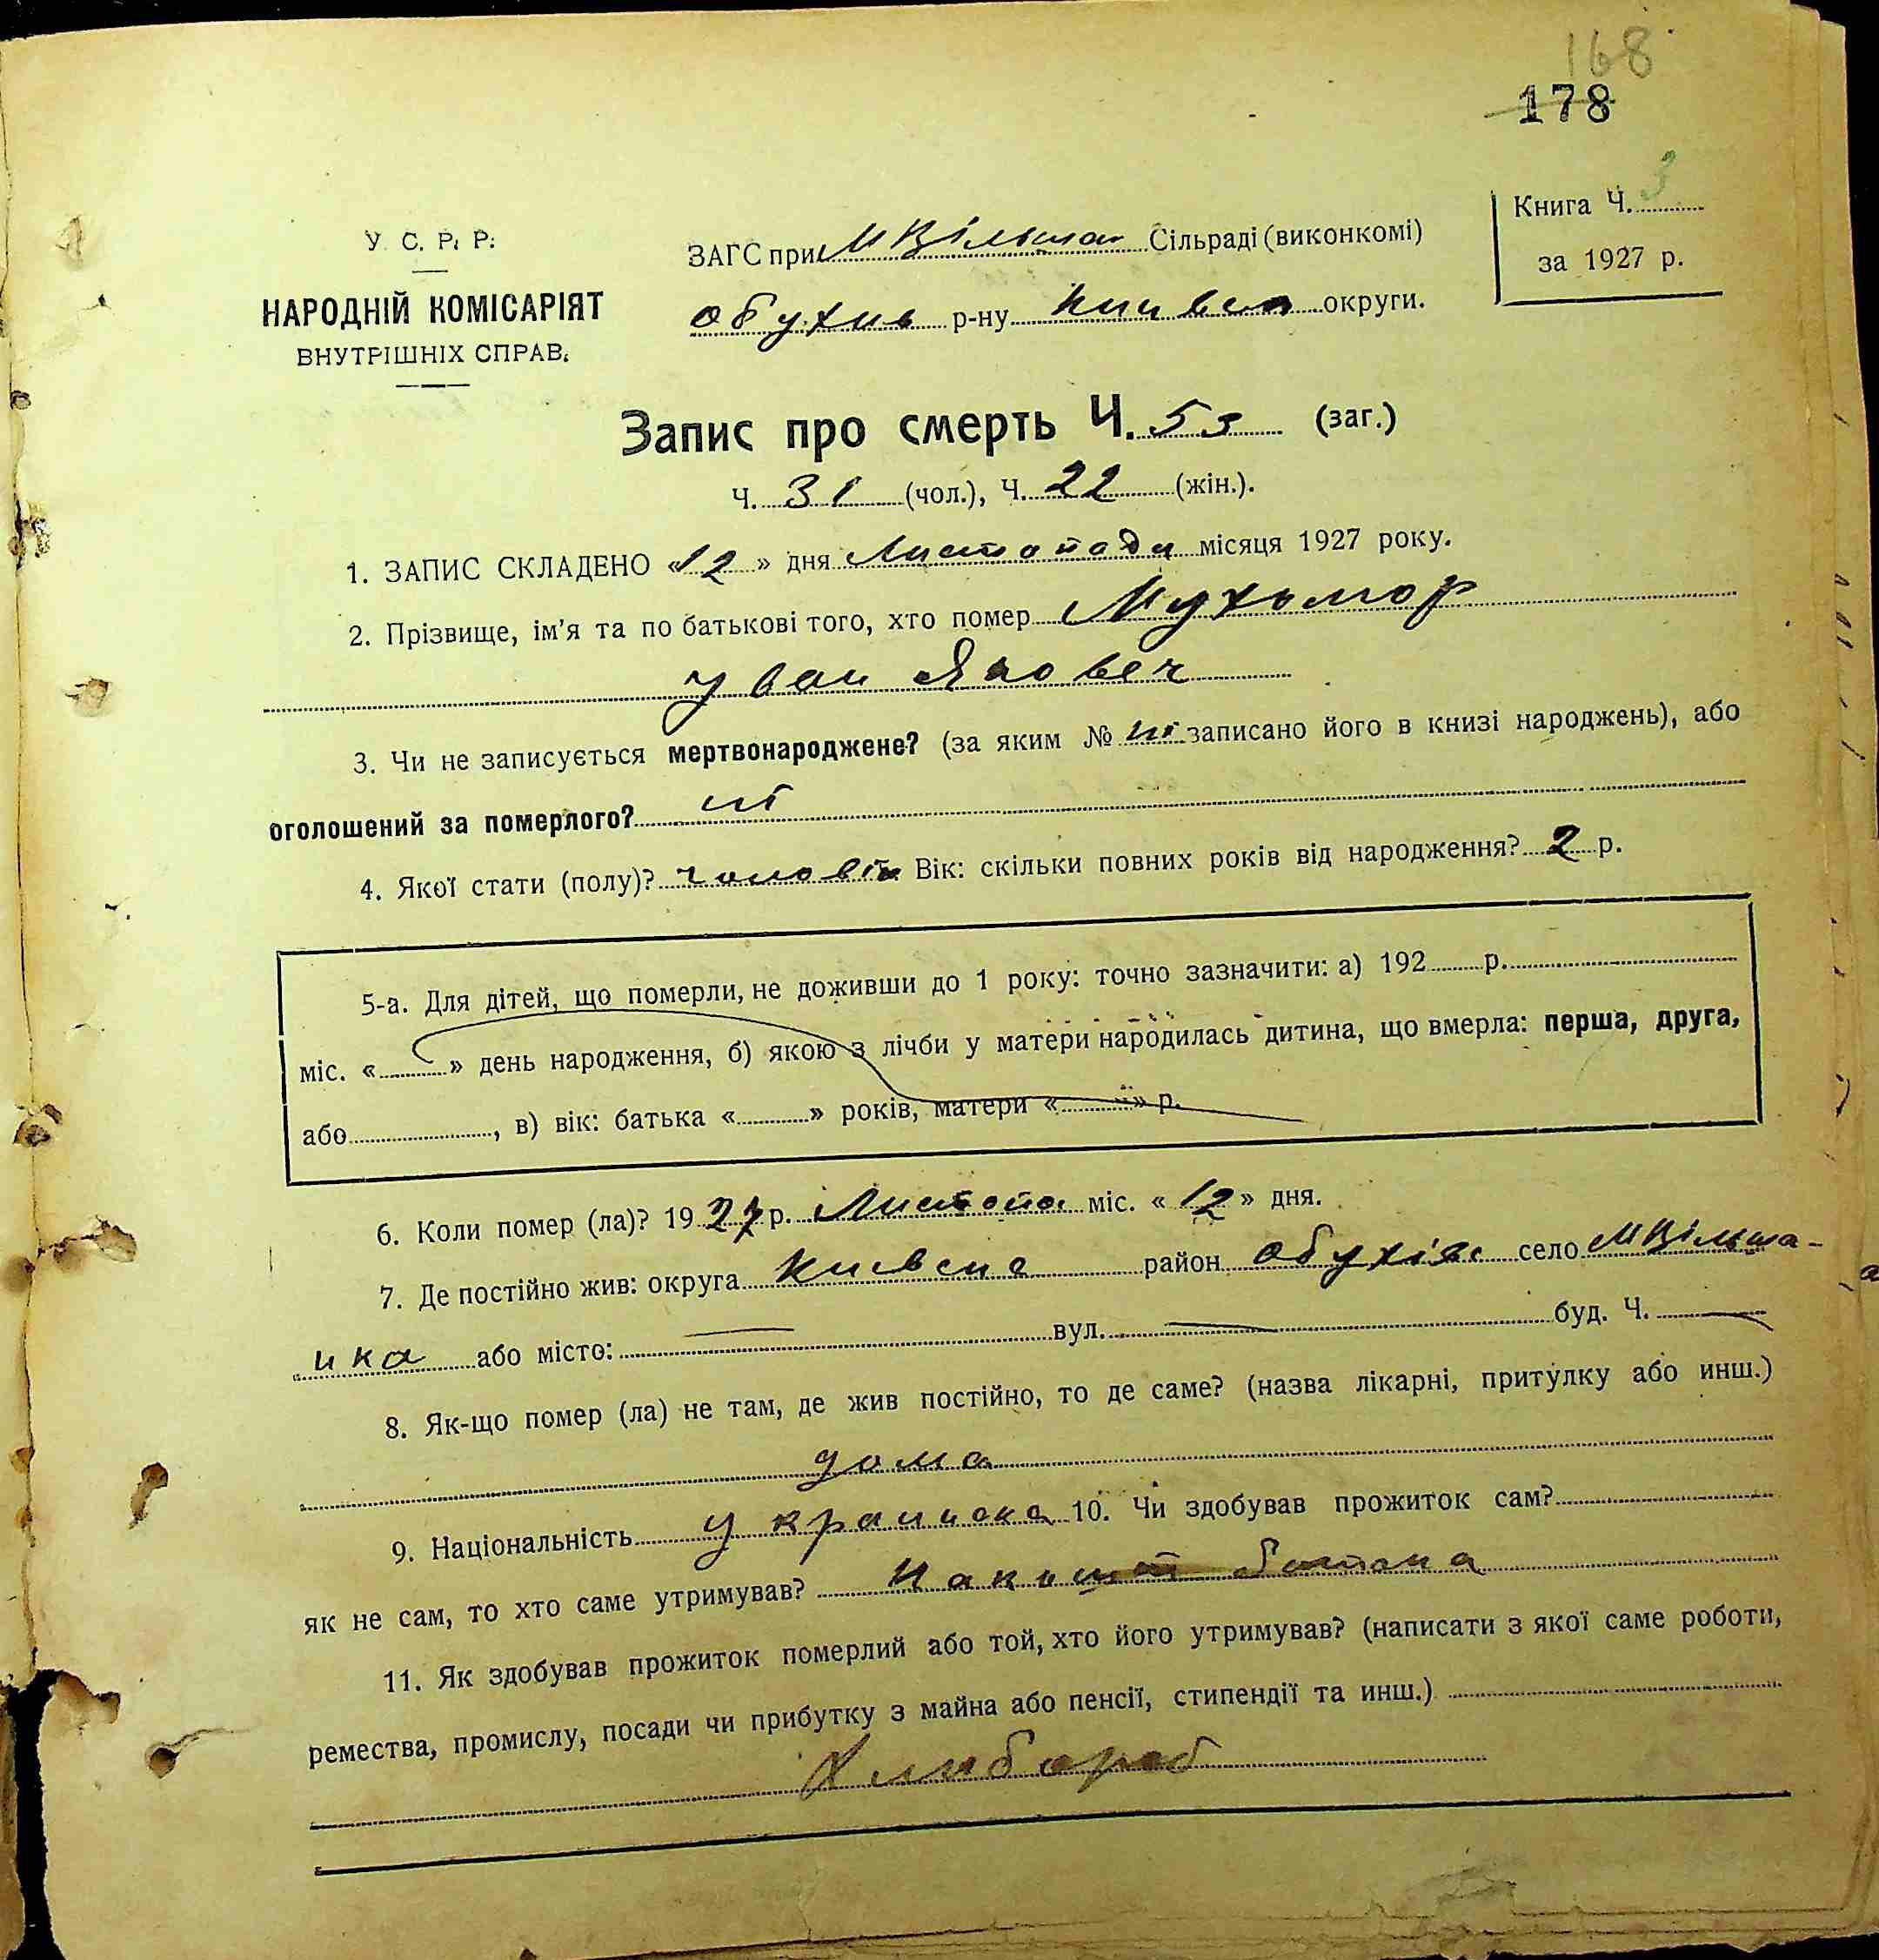 168
178
У. С. Р. Р.
НАРОДНІЙ КОМІСАРІЯТ
ВНУТРІШНІХ СПРАВ.
ЗАГС при М Вільша Сільраді (виконкомі)
Обухив р-ну Киивск округи.
Книга Ч. 3
за 1927 р.
Запис про смерть Ч. 53 (заг.)
Ч. 31 (чол.), Ч. 22 (жін.).
1. ЗАПИС СКЛАДЕНО «12» дня Листопада місяця 1927 року.
2. Прізвище, ім'я та по батькові того, хто помер Мухомор
Уван Яковеч
3. Чи не записується мертвонароджене? (за яким № ні записано його в книзі народжень), або
оголошений за померлого? ні
4. Якої стати (полу)? чоловік Вік: скільки повних років від народження? 2 р.
5-а. Для дітей, що померли, не доживши до 1 року: точно зазначити: а) 192 р.
міс. « » день народження, б) якою з лічби у матери народилась дитина, що вмерла: перша, друга,
або , в) вік: батька « » років, матери « » р.
6. Коли помер (ла)? 1927 р. Листопа міс. «12» дня.
7. Де постійно жив: округа Киевска район Обухівс село М Вільша-
нка або місто: — вул. — буд. Ч. —
8. Як-що помер (ла) не там, де жив постійно, то де саме? (назва лікарні, притулку або инш.)
дома
9. Національність Украинска 10. Чи здобував прожиток сам?
як не сам, то хто саме утримував? батька
11. Як здобував прожиток померлий або той, хто його утримував? (написати з якої саме роботи,
ремества, промислу, посади чи прибутку з майна або пенсії, стипендії та инш.)
Хлибороб